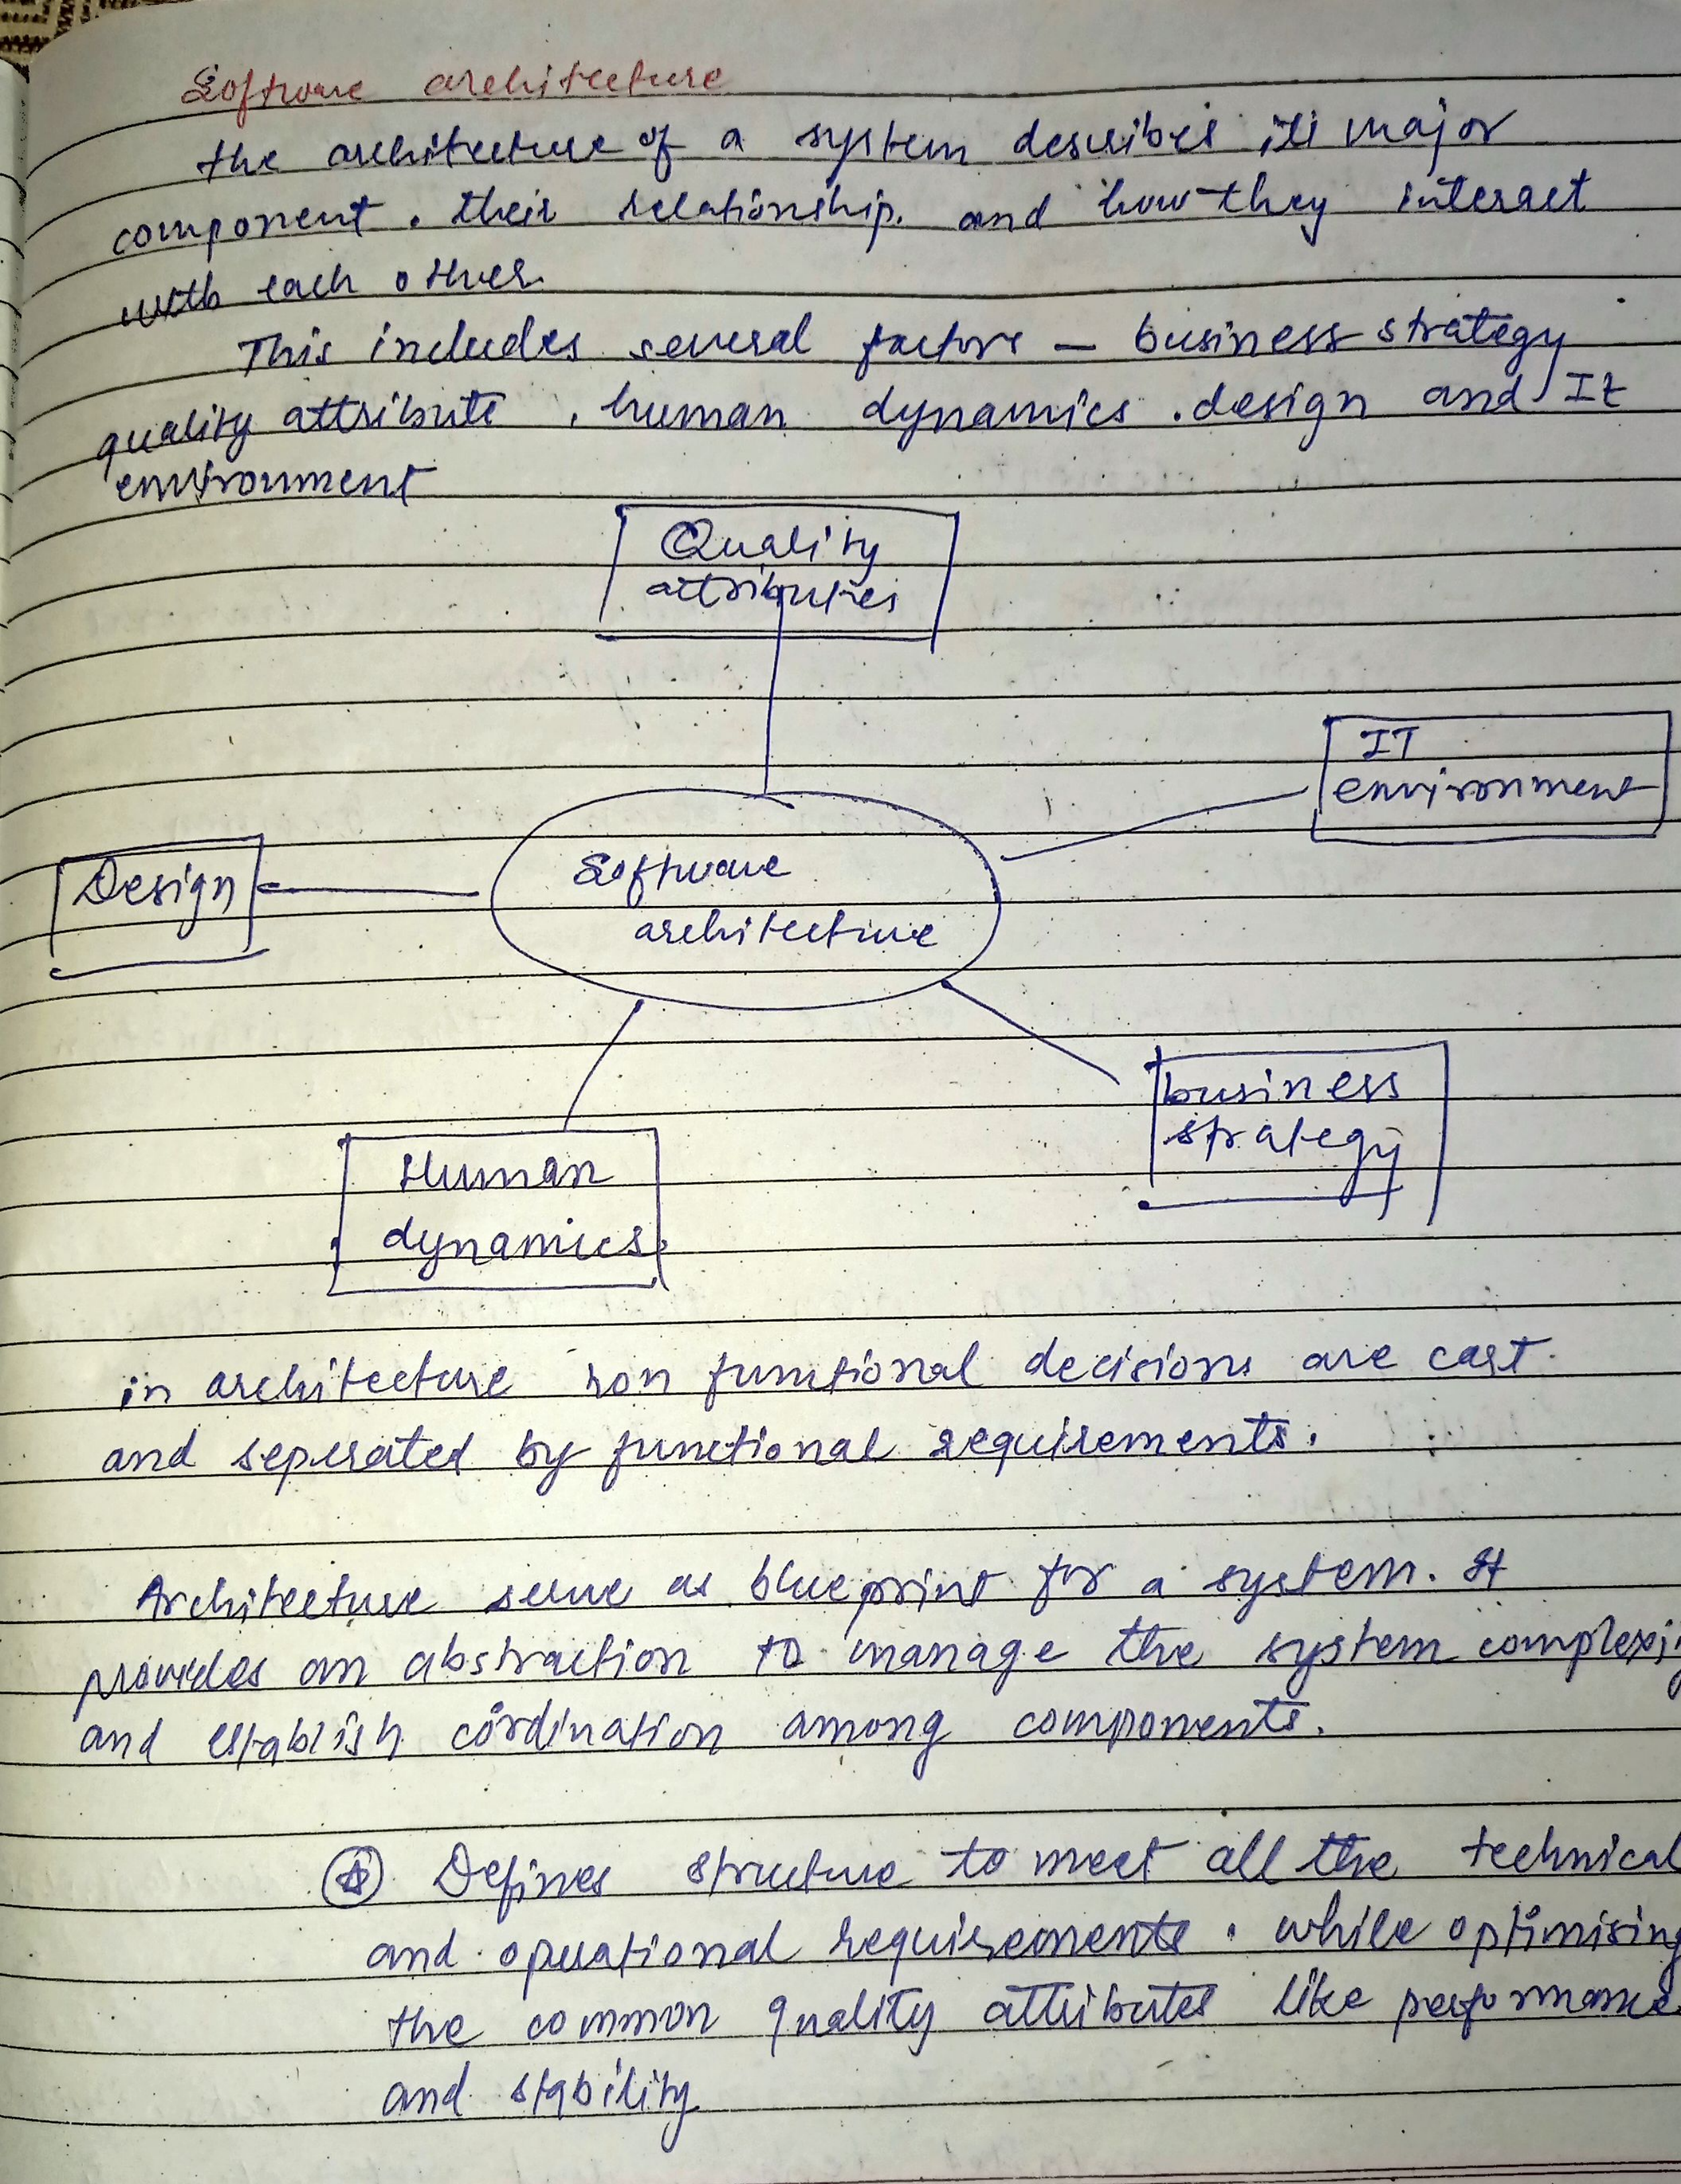 Software architecture
the architecture of a system describes its major
component . their relationship. and how they interact
with each other.
This includes several factors - business strategy
quality attribute , human dynamics . design and It
environment
Quality
attributes
IT
environment
Software
architecture
Design
business
strategy
Human
dynamics
in architecture non functional decisions are cast
and seperated by functional requirements.
Architecture serve as blueprint for a system. It
provides an abstraction to manage the system complexi
and establish cordination among components.
Defines structure to meet all the technical
and operational requirements . while optimising
the common quality attributes like performance
and stability